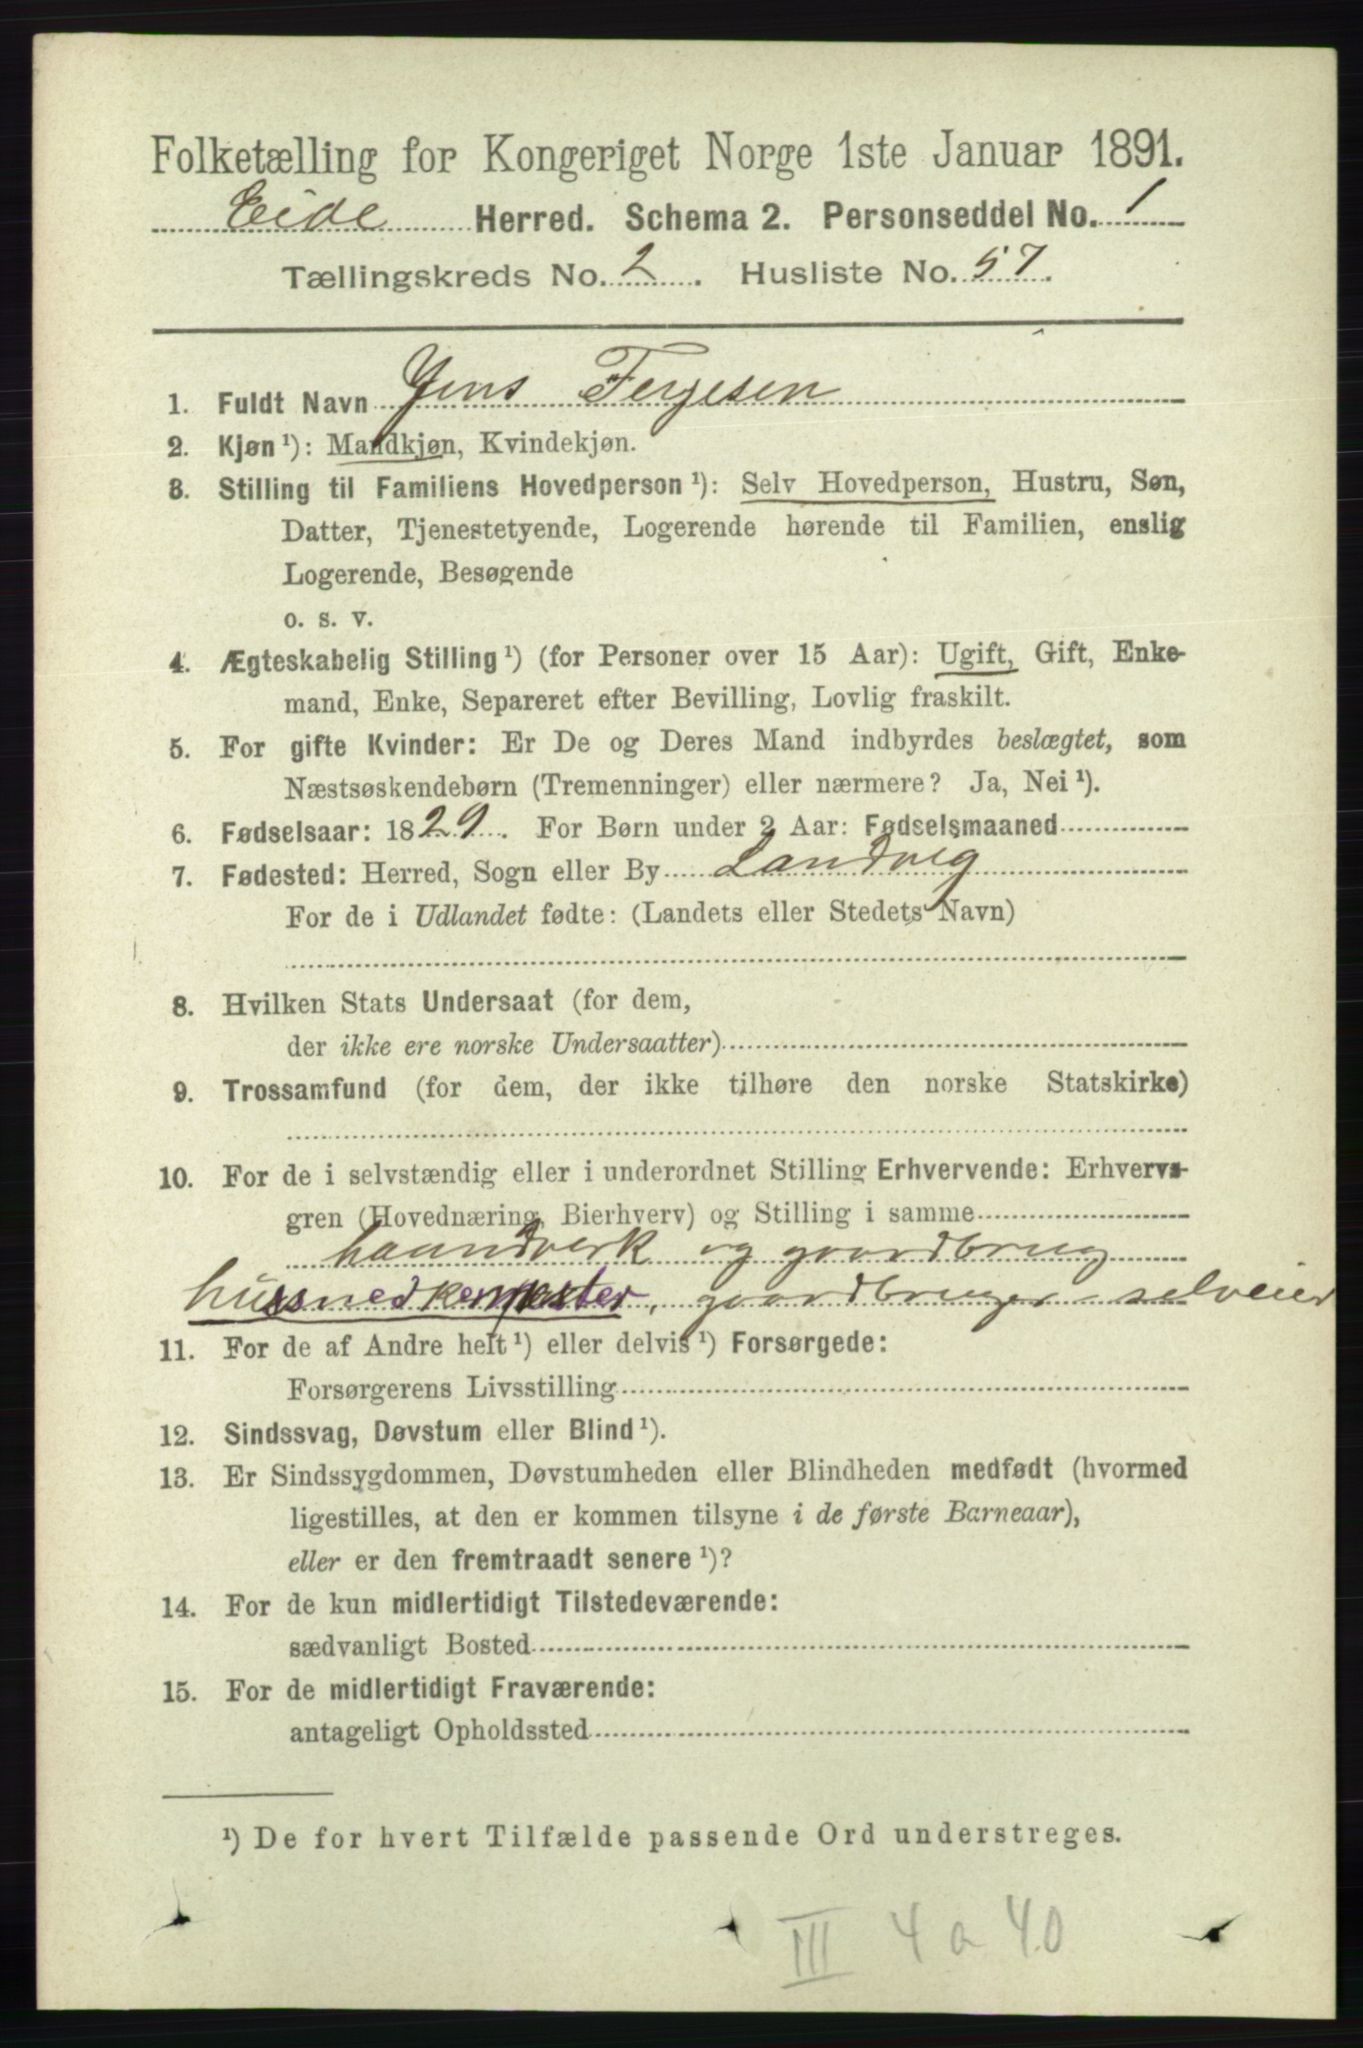 Folketælling for Kongeriget Norge 1ste Januar 1891.
Eide Herred. Schema 2. Personseddel No. 1
Tællingskreds No. 2. Husliste No. 57.
1. Fuldt Navn Jens Terjesen
2. Kjøn ¹): Mandkjøn, Kvindekjøn.
3. Stilling til Familiens Hovedperson ¹): Selv Hovedperson, Hustru, Søn,
Datter, Tjenestetyende, Logerende hørende til Familien, enslig
Logerende, Besøgende
o. s. v.
4. Ægteskabelig Stilling ¹) (for Personer over 15 Aar): Ugift, Gift, Enke-
mand, Enke, Separeret efter Bevilling, Lovlig fraskilt.
5. For gifte Kvinder: Er De og Deres Mand indbyrdes beslægtet, som
Næstsøskendebørn (Tremenninger) eller nærmere? Ja, Nei ¹).
6. Fødselsaar: 1829. For Børn under 2 Aar: Fødselsmaaned
7. Fødested: Herred, Sogn eller By Landvig
For de i Udlandet fødte: (Landets eller Stedets Navn)
8. Hvilken Stats Undersaat (for dem,
der ikke ere norske Undersaatter)
9. Trossamfund (for dem, der ikke tilhøre den norske Statskirke)
10. For de i selvstændig eller i underordnet Stilling Erhvervende: Erhvervs-
gren (Hovednæring, Bierhverv) og Stilling i samme
haandverk og gaardbrug
hussnedkermester, gaardbruger selveier
11. For de af Andre helt ¹) eller delvis ¹) Forsørgede:
Forsørgerens Livsstilling
12. Sindssvag, Døvstum eller Blind ¹).
13. Er Sindssygdommen, Døvstumheden eller Blindheden medfødt (hvormed
ligestilles, at den er kommen tilsyne i de første Barneaar),
eller er den fremtraadt senere ¹)?
14. For de kun midlertidigt Tilstedeværende:
sædvanligt Bosted
15. For de midlertidigt Fraværende:
antageligt Opholdssted
¹) De for hvert Tilfælde passende Ord understreges.
III 4 a 40